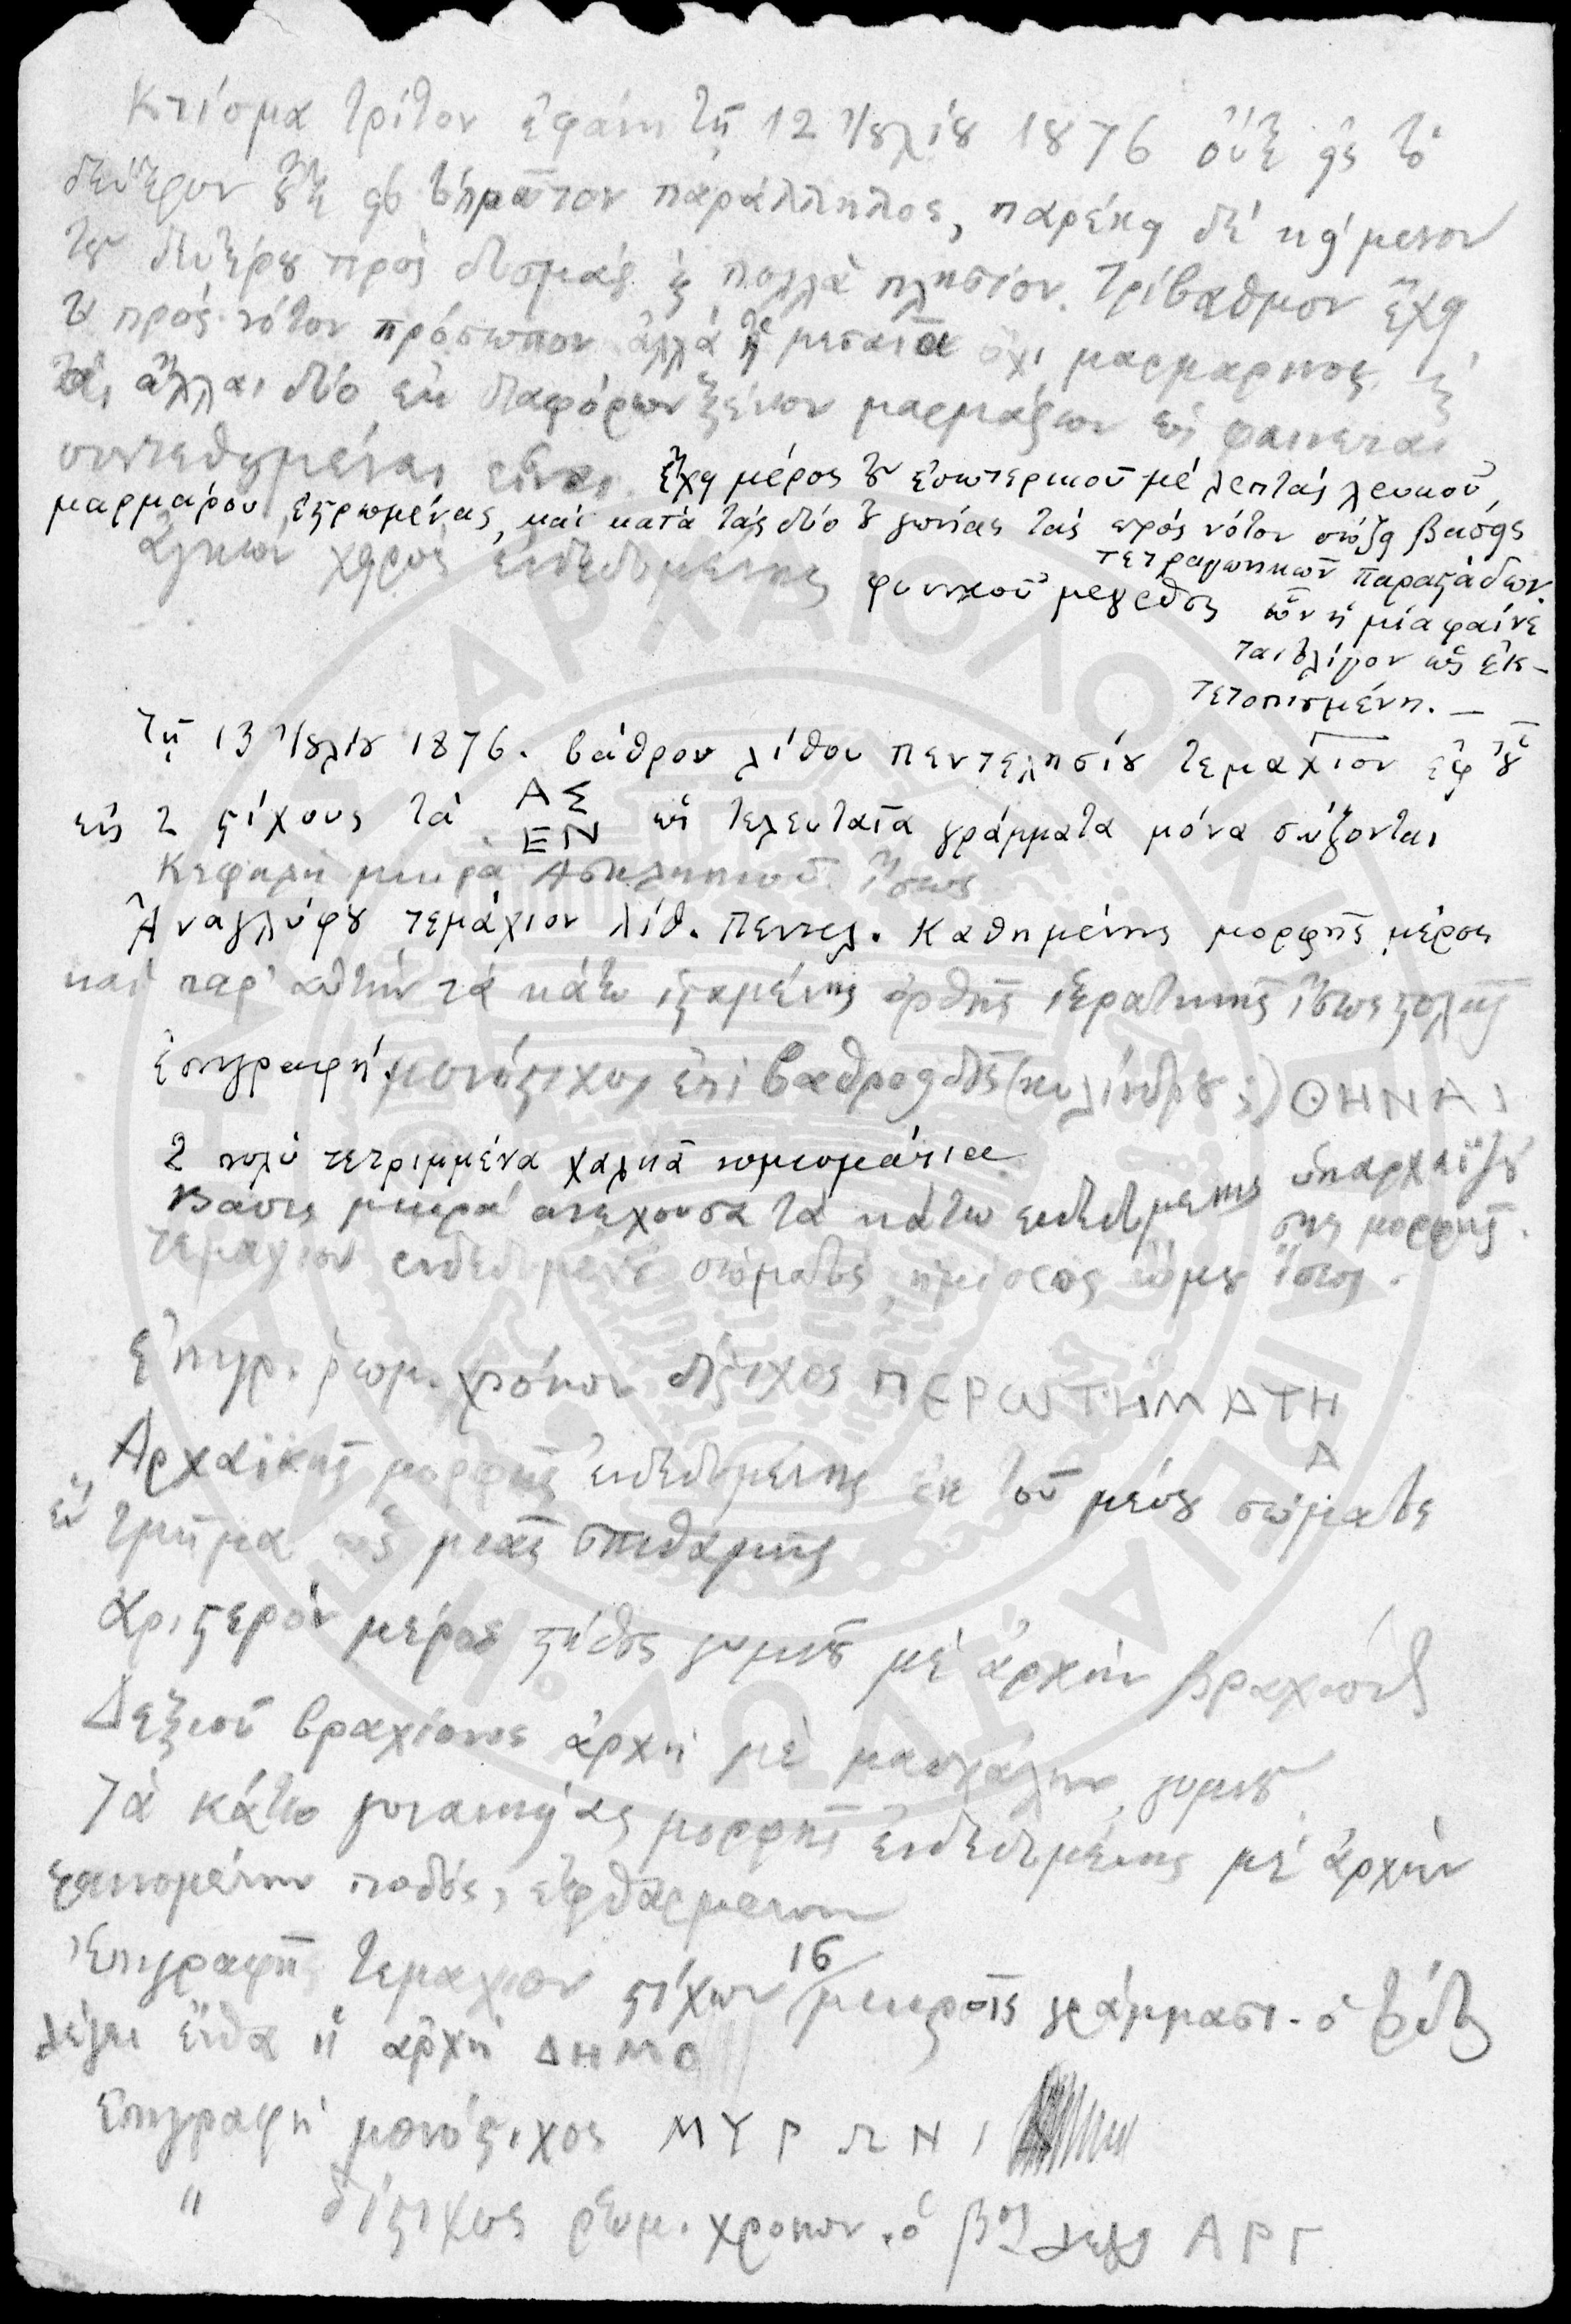 Κτίσμα τρίτον ἐφάνη τῇ 12 Ἰουλίου 1876 οὔτε εἰς τὸ
δεύτερον οὔτε εἰς τὸ πρῶτον παράλληλος, παρέκει δὲ κείμενον
τοῦ δευτέρου πρὸς δυσμὰς καὶ πολλὰ πλησίον. Τρίβαθμον ἔχει
τὸ πρὸς νότον πρόσωπον ἀλλὰ ἡ μεσαία ὄχι μαρμάρινος καὶ
αἱ ἄλλαι δύο ἐκ διαφόρων ξένων μαρμάρων ὡς φαίνεται
συντεθειμέναι εἶναι. ἔχει μέρος τοῦ ἐσωτερικοῦ μὲ λεπτὰς λευκοῦ
μαρμάρου ἐστρωμένας, καὶ κατὰ τὰς δύο του γωνίας τὰς πρὸς νότον σώζει βάσεις
τετραγωνικῶν παραστάδων.
ἀγκὼν χειρὸς ἐνδεδυμένης φυσικοῦ μεγέθους ὧν ἡ μία φαίνε
ται ὀλίγον ὡς ἐκ-
τετοπισμένη. —
Τῇ 13 Ἰουλίου 1876. βάθρου λίθου πεντελησίου τεμάχιον ἐφ' οὗ
εἰς 2 στίχους τὰ ΑΣ ὡς τελευταῖα γράμματα μόνα σώζονται
ΕΝ
Κεφαλὴ μικρὰ Ἀσκληπιοῦ ἴσως
Ἀναγλύφου τεμάχιον λίθ. Πεντελ. Καθημένης μορφῆς μέρος
καὶ παρ' αὐτὴν τὰ κάτω ἱσταμένης ὀρθῆς ἱερατικῆς ἴσως στολῆς
ἐπιγραφή μονόστιχος ἐπὶ βαθροειδοῦς (κυλίνδρου;) ΘΗΝΑΙ
2 πολὺ τετριμμένα χαλκᾶ νομισμάτια
Βάσις μικρὰ ἀνέχουσα τὰ κάτω ἐνδεδυμένης ὑπαρχαϊζού
σης μορφῆς.
Τεμάχιον ἐνδεδυμένου σώματος, ἡμίσεος ὤμου ἴσως.
Ἐπιγρ. ῥωμ. χρόνων δίστιχος ΠΕΡΩΤΗΜΑΤΗ
Α
Ἀρχαϊκῆς μορφῆς ἐνδεδυμένης ἐκ τοῦ μέσου σώματος
ἓν τμῆμα ὡς μιᾶς σπιθαμῆς
Ἀριστερὸν μέρος στήθους γυμνοῦ μὲ ἀρχὴν βραχίονος
Δεξιοῦ βραχίονος ἀρχὴ μὲ μασχάλην γυμνοῦ
Τὰ κάτω γυναικείας μορφῆς ἐνδεδυμένης μὲ ἀρχὴν
φαινομένην ποδός, ἐφθαρμένου
Ἐπιγραφῆς τεμάχιον στίχων 16 μικροῖς γράμμασι. ὁ
λέγει ἔνθα ἡ ἀρχὴ ΔΗΜΟ
Ἐπιγραφὴ μονόστιχος ΜΥΡΩΝΙ
" δίστιχος ῥωμ. χρόνων. ὁ βος λέγει ΑΡΓ